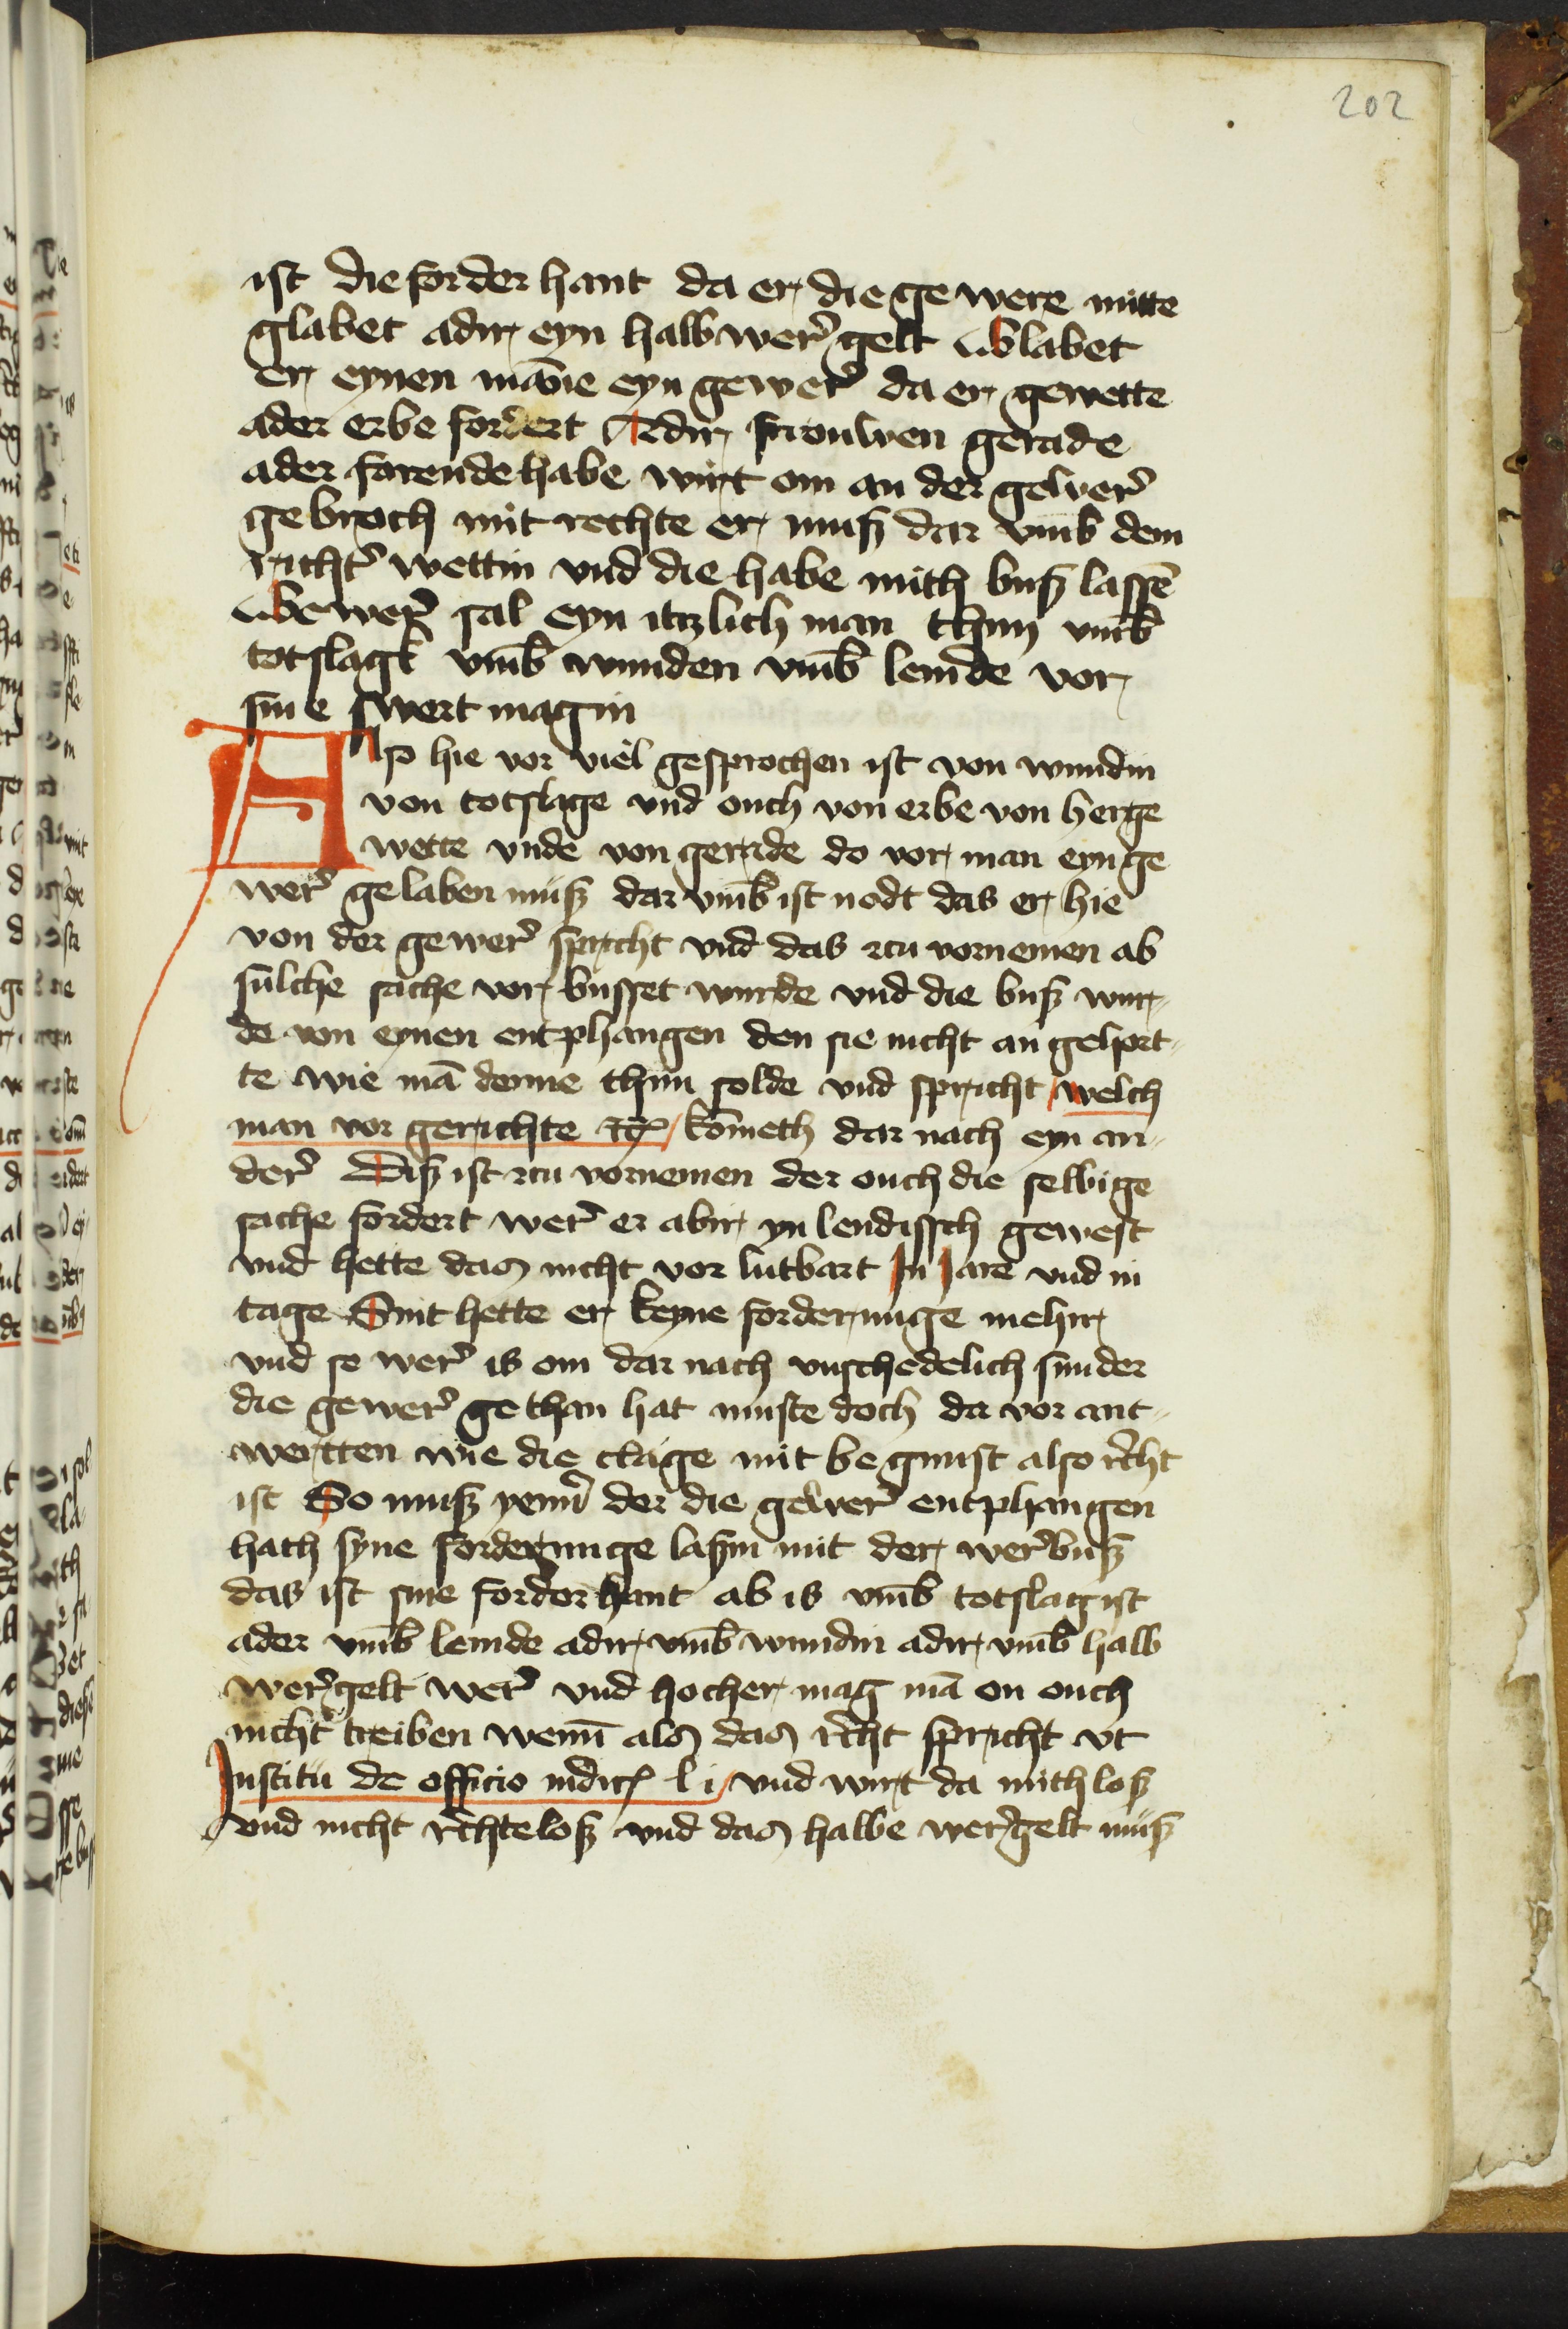 202
ist die forder hant da er die gewere mitte
glabet adir eyn halb wer̉gelt Glabet
er eynen mãne eyn gewer̉ da er gewette
ader erbe fordert Adir frouwen gerade
ader farende habe wirt om an der gewer̉
gebroch mit rechte er muß dar vm̄b dem
richt̉ wettin vnd die habe mith buß lassē
Gewer̉ sal eyn itzlich man thun vm̄b
totslagk vm̄b wunden vm̄b lemde vor
sine swert magin
Also hie vor viel gesprochen ist von wundin
von totslage vnd ouch von erbe von herge
wette vnde von gerade do vor man eyn ge
wer̉ gelaben muß dar vm̄b ist nodt das er hie
von der gewer̉ spricht vnd das zcu vornemen ab
sulche sache vor busset wurde vnd die buß wur-
de von eynen entphangen den sie nicht an gehort-
te wie mã denne thun solde vnd spricht welch
man vor gerichte ꝛc̉ kom̄eth dar nach eyn an-
der̉ Diß ist zcu vornemen der ouch die selbige
sache fordert wer̉ er abir yn lendissch gewest
vnd hette das nicht vor lutbart In Jare vnd in
tage Sint hette er keyne forderunge mehir
vnd so wer̉ is om dar nach vnschedelich sunder
die gewer̉ gethan hat muste doch da vor ant-
wertten wie die clage mit begunst also r̉cht
ist So muß yenn̉ der die gewer̉ entphangen
hath syne forderunge laßin mit der wer̉buß
das ist sine forder hant ab is vm̄b totslag ist
ader vm̄b lemde adir vm̄b wundin adir vm̄b halb
wer̉gelt wer̉ vnd hocher mag mã on ouch
nicht treiben wenn̄ als das r̉cht spricht vt
Institu de officio iudic̉ l i vnd wirt da mith loß
vnd nicht r̉chteloß vnd das halbe wer̉gelt muß